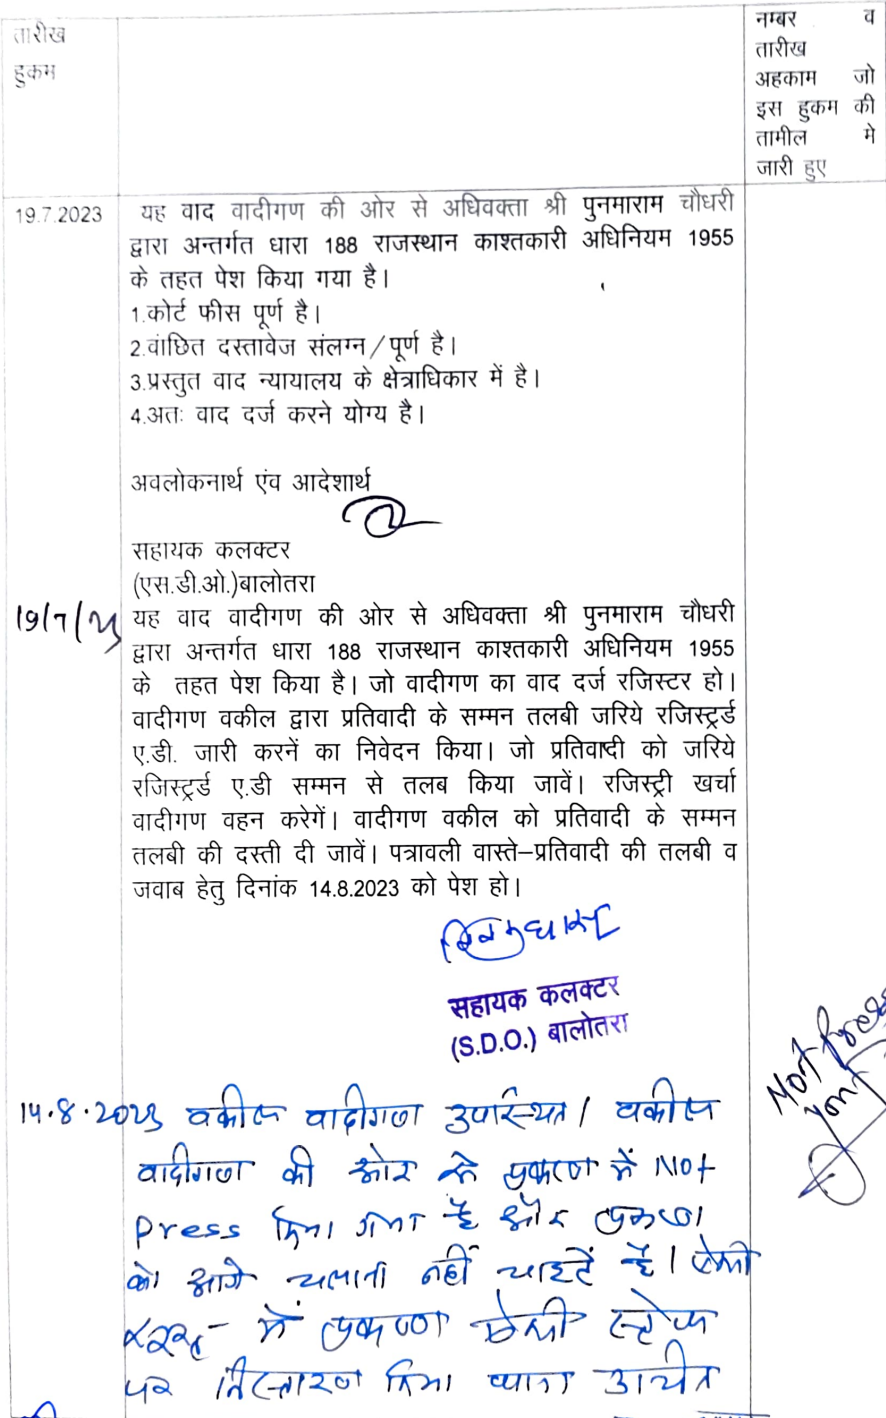 तारीख
हुकम
नम्बर व
तारीख
अहकाम जो
इस हुकम की
तामील मे
जारी हुए
19.7.2023 यह वाद वादीगण की ओर से अधिवक्ता श्री पुनमाराम चौधरी
द्वारा अन्तर्गत धारा 188 राजस्थान काश्तकारी अधिनियम 1955
के तहत पेश किया गया है।
1.कोर्ट फीस पूर्ण है।
2.वांछित दस्तावेज संलग्न/पूर्ण है।
3.प्रस्तुत वाद न्यायालय के क्षेत्राधिकार में है।
4.अतः वाद दर्ज करने योग्य है।
अवलोकनार्थ एंव आदेशार्थ
सहायक कलक्टर
(एस.डी.ओ.)बालोतरा
19/7/23 यह वाद वादीगण की ओर से अधिवक्ता श्री पुनमाराम चौधरी
द्वारा अन्तर्गत धारा 188 राजस्थान काश्तकारी अधिनियम 1955
के तहत पेश किया है। जो वादीगण का वाद दर्ज रजिस्टर हो।
वादीगण वकील द्वारा प्रतिवादी के सम्मन तलबी जरिये रजिस्ट्रर्ड
ए.डी. जारी करनें का निवेदन किया। जो प्रतिवादी को जरिये
रजिस्ट्रर्ड ए.डी सम्मन से तलब किया जावें। रजिस्ट्री खर्चा
वादीगण वहन करेगें। वादीगण वकील को प्रतिवादी के सम्मन
तलबी की दस्ती दी जावें। पत्रावली वास्ते–प्रतिवादी की तलबी व
जवाब हेतु दिनांक 14.8.2023 को पेश हो।
सहायक कलक्टर
(S.D.O.) बालोतरा
Not Press
14.8.2023 वकील वादीगण उपस्थित। वकील
वादीगण की ओर से प्रकरण में Not
Press किया गया है और प्रकरण
को आगे चलाना नहीं चाहते है। ऐसी
में प्रकरण इसी स्टेज
पर निस्तारण किया जाना उचित